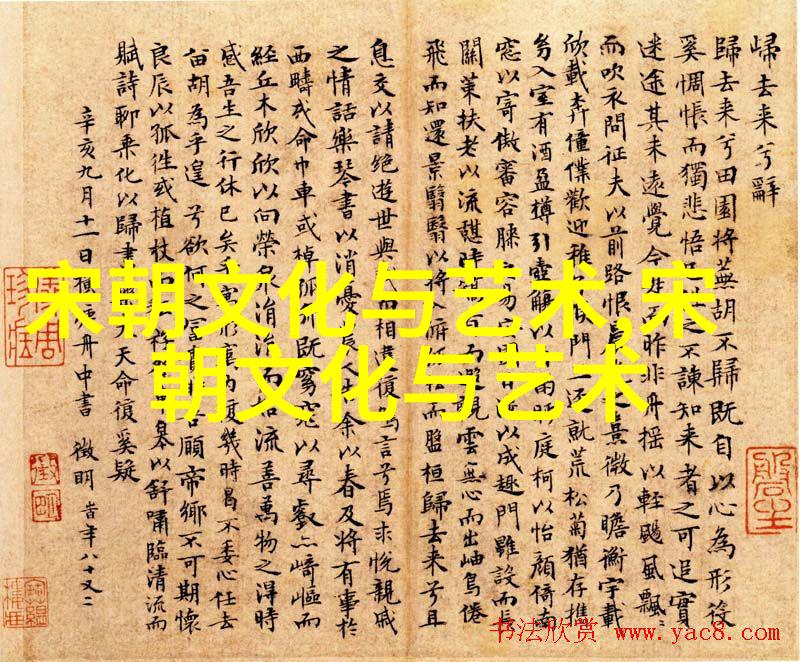 歸去来兮辭
歸去来兮田園将蕪胡不歸既自以心為形役
奚惆悵而獨悲悟之不諫知来者之可追實
迷途其未遠覺今昨非舟摇以輕颺風飄〻
而吹衣問征夫以前路恨景微乃瞻衡宇載
欣載奔僮僕歡迎稚門三逕就荒松菊猶存攜
幼入室有酒盈樽引壺觴以庭柯以怡顔倚南
窓以寄傲審容膝易以成趣門雖設而長
關策扶老以流憩時而遐觀雲無心而出岫鳥倦
飛而知還景翳翳以将入而盤桓歸去来兮且
息交以請絶遊世與我而相違復駕言兮焉求悦親戚
之情話樂琴書以消憂農人余以春及将有事於
西疇或命巾車或棹孤舟既窈窕以尋壑亦崎嶇而
經丘木欣欣以向榮泉涓涓而始流善萬物之得時
感吾生之行休已矣寓形内復幾時曷不委心任去
留胡為乎遑兮欲何之富吾願帝鄉不可期懷
良辰以孤往或植杖皋以舒嘯臨清流而
賦詩聊乘化以歸天命復奚疑
辛亥九月十一日横塘舟中書 徵明 時年八十又二
宋朝文化与艺术,宋
朝文化与艺术
书法欣赏 www.yac8.com